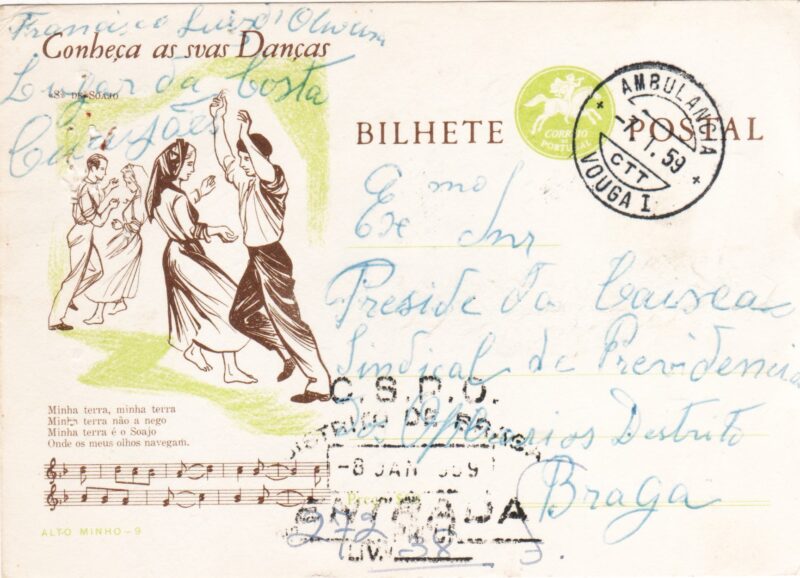 Francisco Luís d'Oliveira
Conheça as svas Danças
Lugar da Costa
«S» DE SOAJO
BILHETE POSTAL
CORREIO
PORTUGAL
AMBULANCIA
-7.1.59
CTT
VOUGA I
Exmo Snr
Preside da
Sindical de Previdencia
dos Operarios Destrito
Braga
C.S.P.O.
DISTRITO DE BRAGA
-8 JAN 959
ENTRADA
272
38
LIV.
3
Minha terra, minha terra
Minha terra não a nego
Minha terra é o Soajo
Onde os meus olhos navegam.
ALTO MINHO - 9